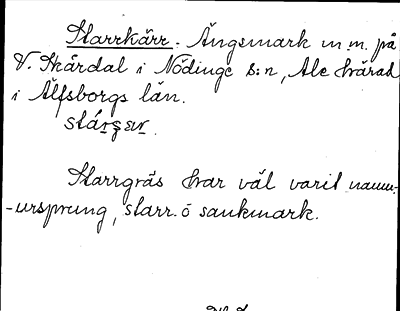 Starrkärr. Ängsmark m.m. på
V. Skårdal i Nödinge s:n, Ale härad
i Älfsborgs län.
Starrgräs har väl varit namn-
-ursprung, starr. ö sankmark.